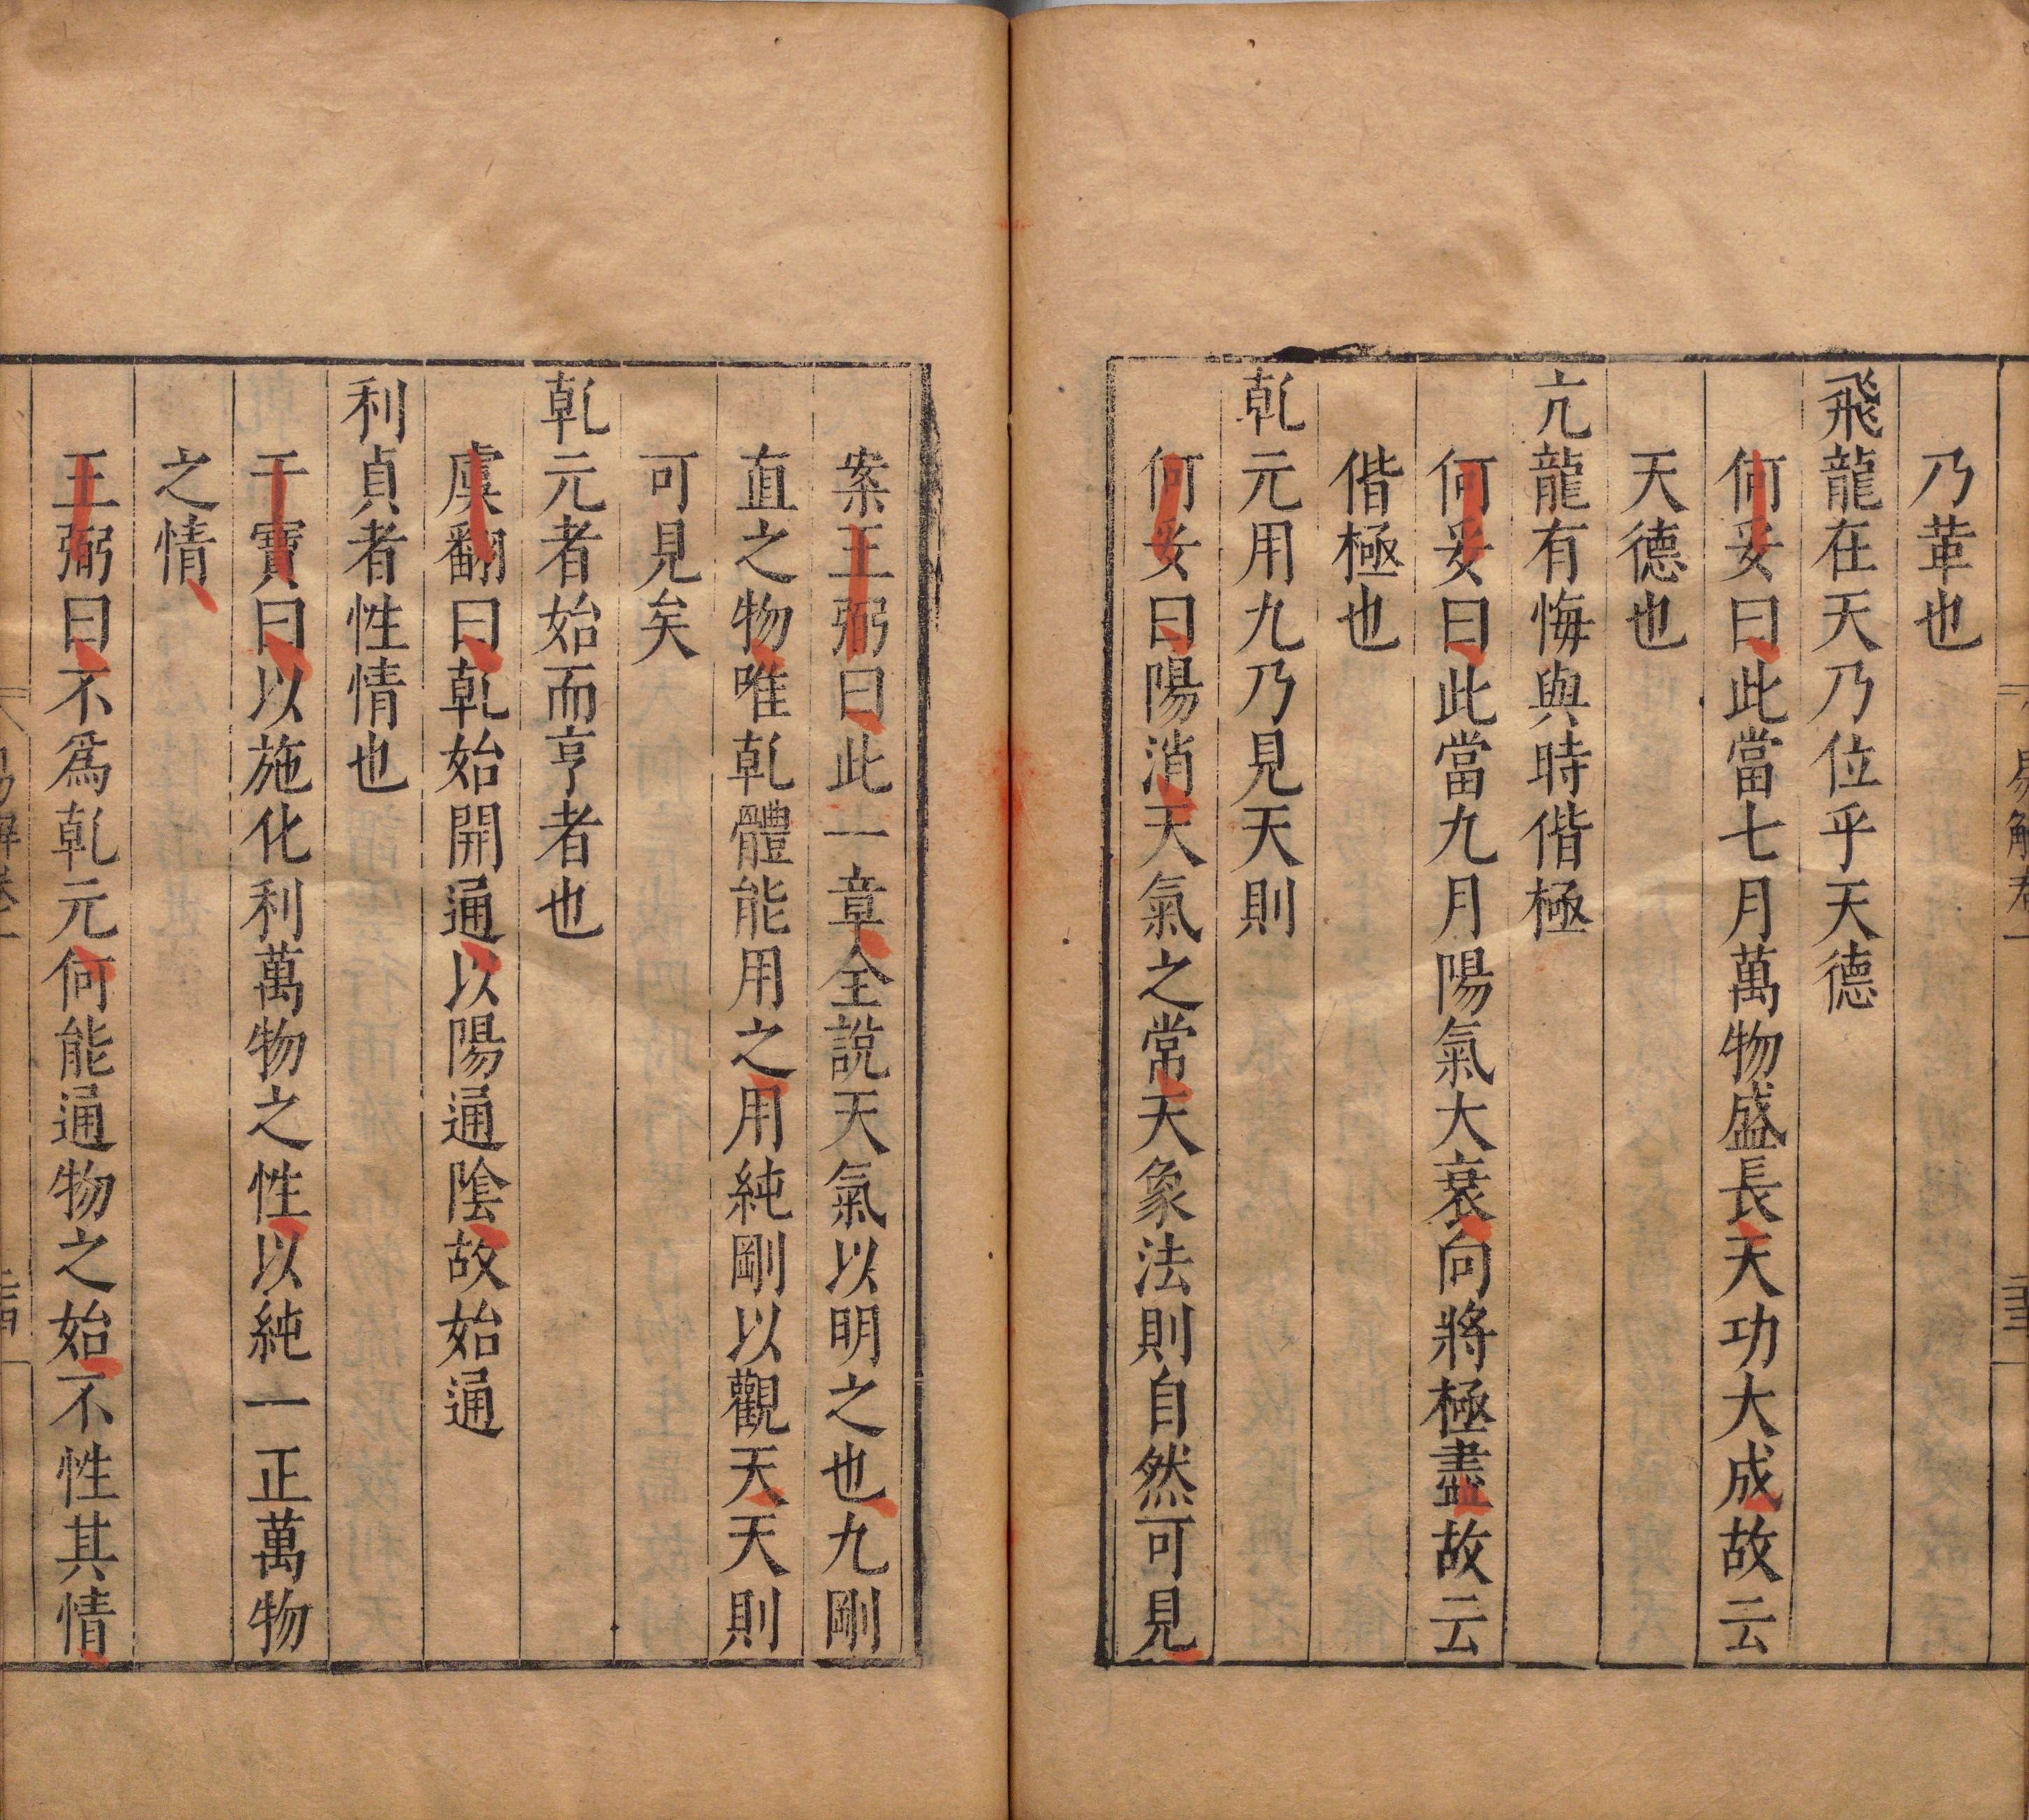 乃革也
飛龍在天乃位乎天德
何妥曰此當七月萬物盛長天功大成故云
天德也
亢龍有悔與時偕極
何妥曰此當九月陽氣大衰向將極盡故云
偕極也
乹元用九乃見天則
何妥曰陽消天氣之常天象法則自然可見
案王弼曰此一章全說天氣以明之也九剛
直之物唯乹體能用之用純剛以觀天天則
可見矣
乹元者始而亨者也
虞翻曰乹始開通以陽通陰故始通
利貞者性情也
干寶曰以施化利萬物之性以純一正萬物
之情
王弼曰不爲乹元何能通物之始不性其情